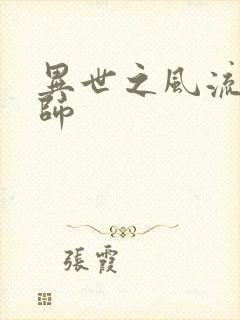 異世之風流
師
張霞